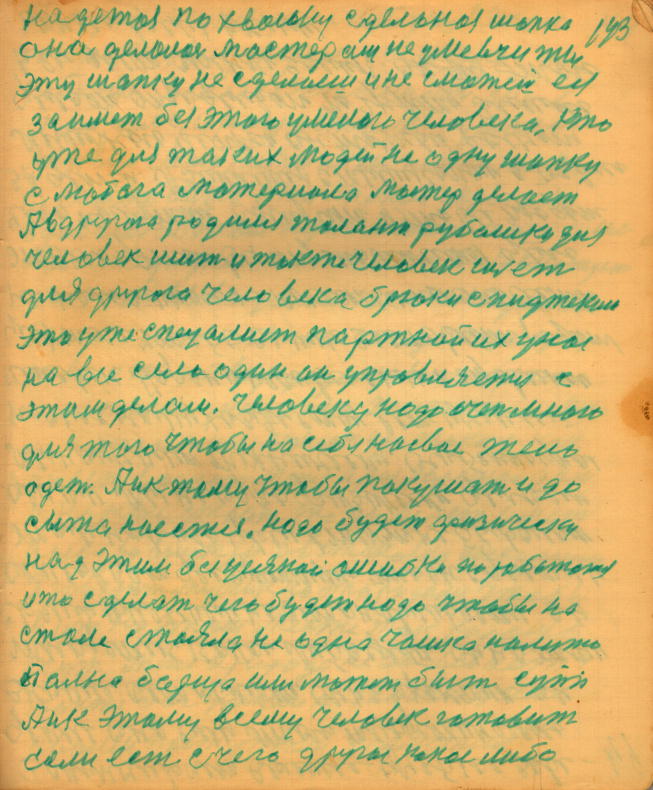 надетоя по хвалыку сдельноя шапка 193
она делалоя мастерам не умевчи ты
эту шапку не сделаеш и не сможеш ея
заимет без этого умелого человека, кто
уже для таких людей не одну шапку
с любога материала мастер делает
А в другога родился талант рубашки для
человек шит и тожтечеловек шет
для друга человека брюки с пиджеком
это уже специалист партной их у нас
на все село один он управляетя с
этим делам. Человеку надо очен много
для того чтобы на себя новае
одет. А к тому чтобы покушат и до
сыта наестся. надо будет физически
над этим без усякой ошибки поработат
и то сделат чего будет надо чтобы на
столе стояла не одна чашка налито
полна борща или может быт суп
А к этому всему человек готовит
если ест с чего другое какое либо